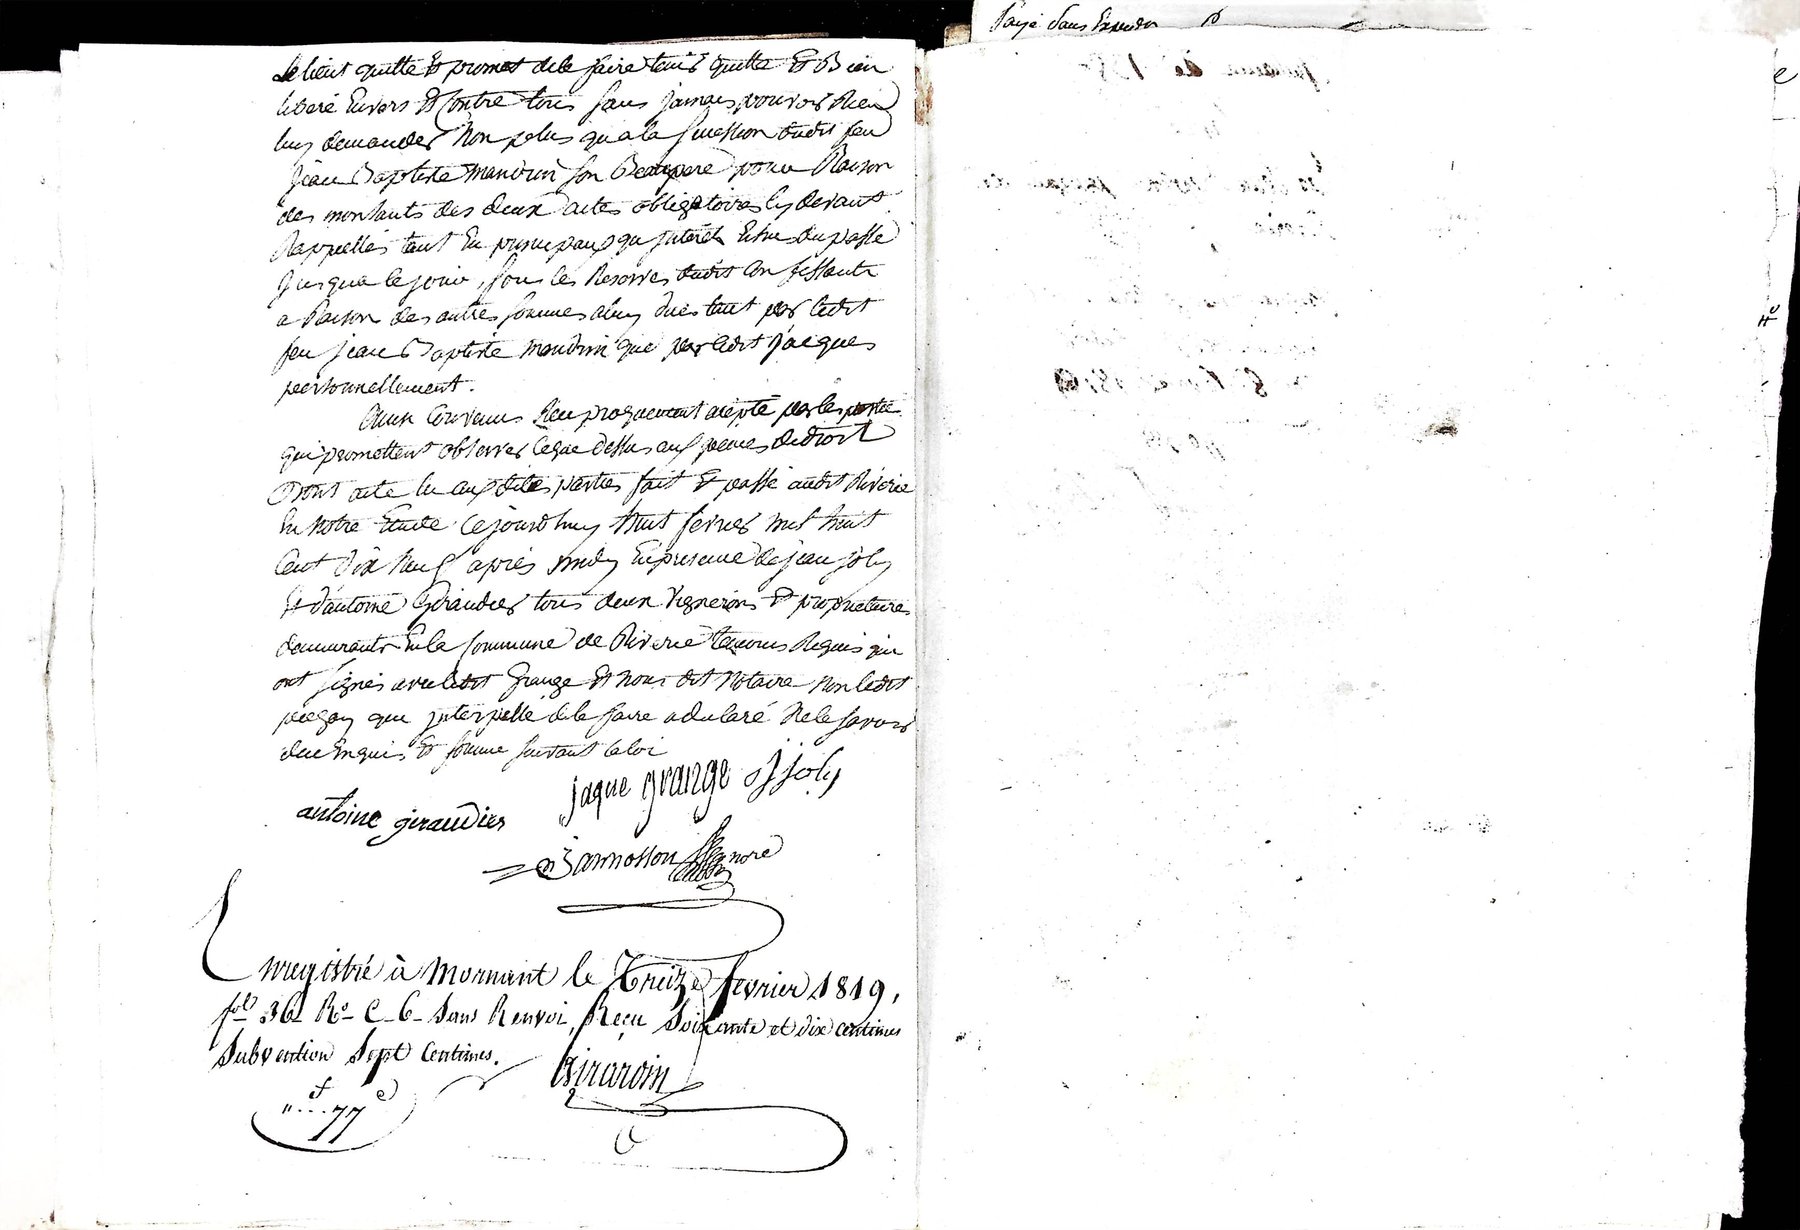 le tient quitte et promet de le faire tenir quitte et Bien
liberé Envers et Contre tous sans jamais pouvoir Rien
luy demander Non plus qu'a la succession dudit feu
jean Baptiste mandrin son Beaupere pour Raison
des montants des deux actes obligatoires cy devant
Rappellés tant En principaux qu'jnterets
jusqua ce jour, sous les Reserves dudit
a Raison des autres sommes a luy dues tant par ledit
feu jean Baptiste mandrin que par ledit jacques
personnellement.
Ainsi Convenus Reciproquement accepté par les parties
qui promettent observer ce que dessus aux peines de droit
Dont acte lu aux dites parties fait et passé audit Riverie
En notre Etude Cejourdhuy huit fevrier mil huit
Cent Dix Neuf après midy En presence de jean joly
Et d'antoine Giraudier tous deux Vignerons et proprietaires
demeurants En la Commune de Riverie temoins Requis qui
ont signés avec ledit Grange Et Nous dit Notaire Non ledit
que jnterpellé de le faire a declaré Ne le savoir
de ce Enquis Et sommé suivant la loi
jaque grange J joly
antoine giraudier
nore
Enregistré à Mornant le Treize fevrier 1819,
fol 36 Ro C 6 Sans Renvoi, Reçu Soixante et dix centimes
Subvention Sept Centimes.
Girardin
f c
"....77
Payé Sans